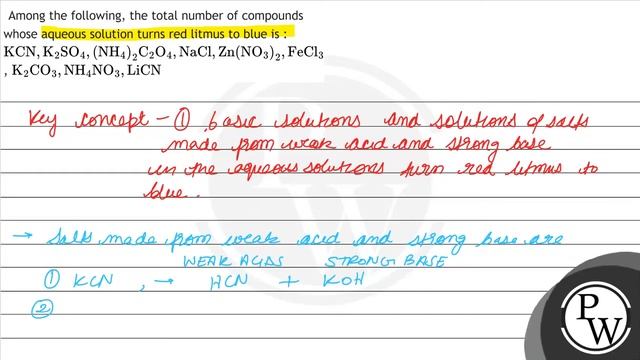 Among the following, the total number of compounds
whose aqueous solution turns red litmus to blue is :
KCN, K₂SO₄, (NH₄)₂C₂O₄, NaCl, Zn(NO₃)₂, FeCl₃
, K₂CO₃, NH₄NO₃, LiCN
Key concept - ① basic solutions and solutions of salts
made from weak acid and strong base
in the aqueous solutions turn red litmus to
blue.
→ Salts made from weak acid and strong base are
WEAK ACIDS STRONG BASE
① KCN, → HCN + KOH
②
PW